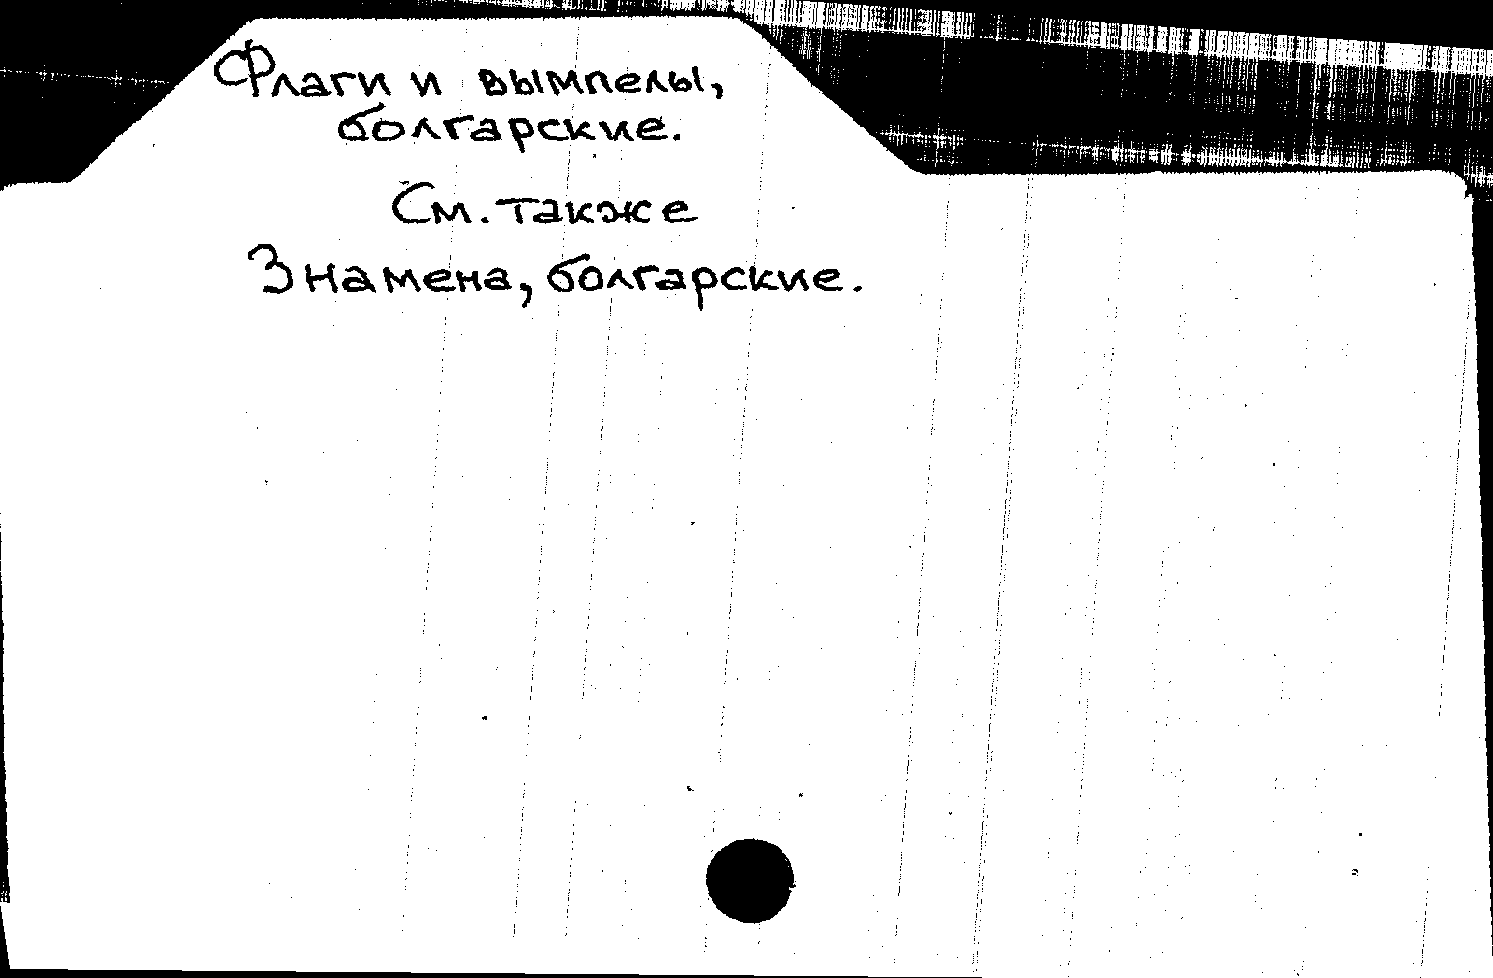 Флаги и вымпелы,
болгарские.
См. также
Знамена, болгарские.